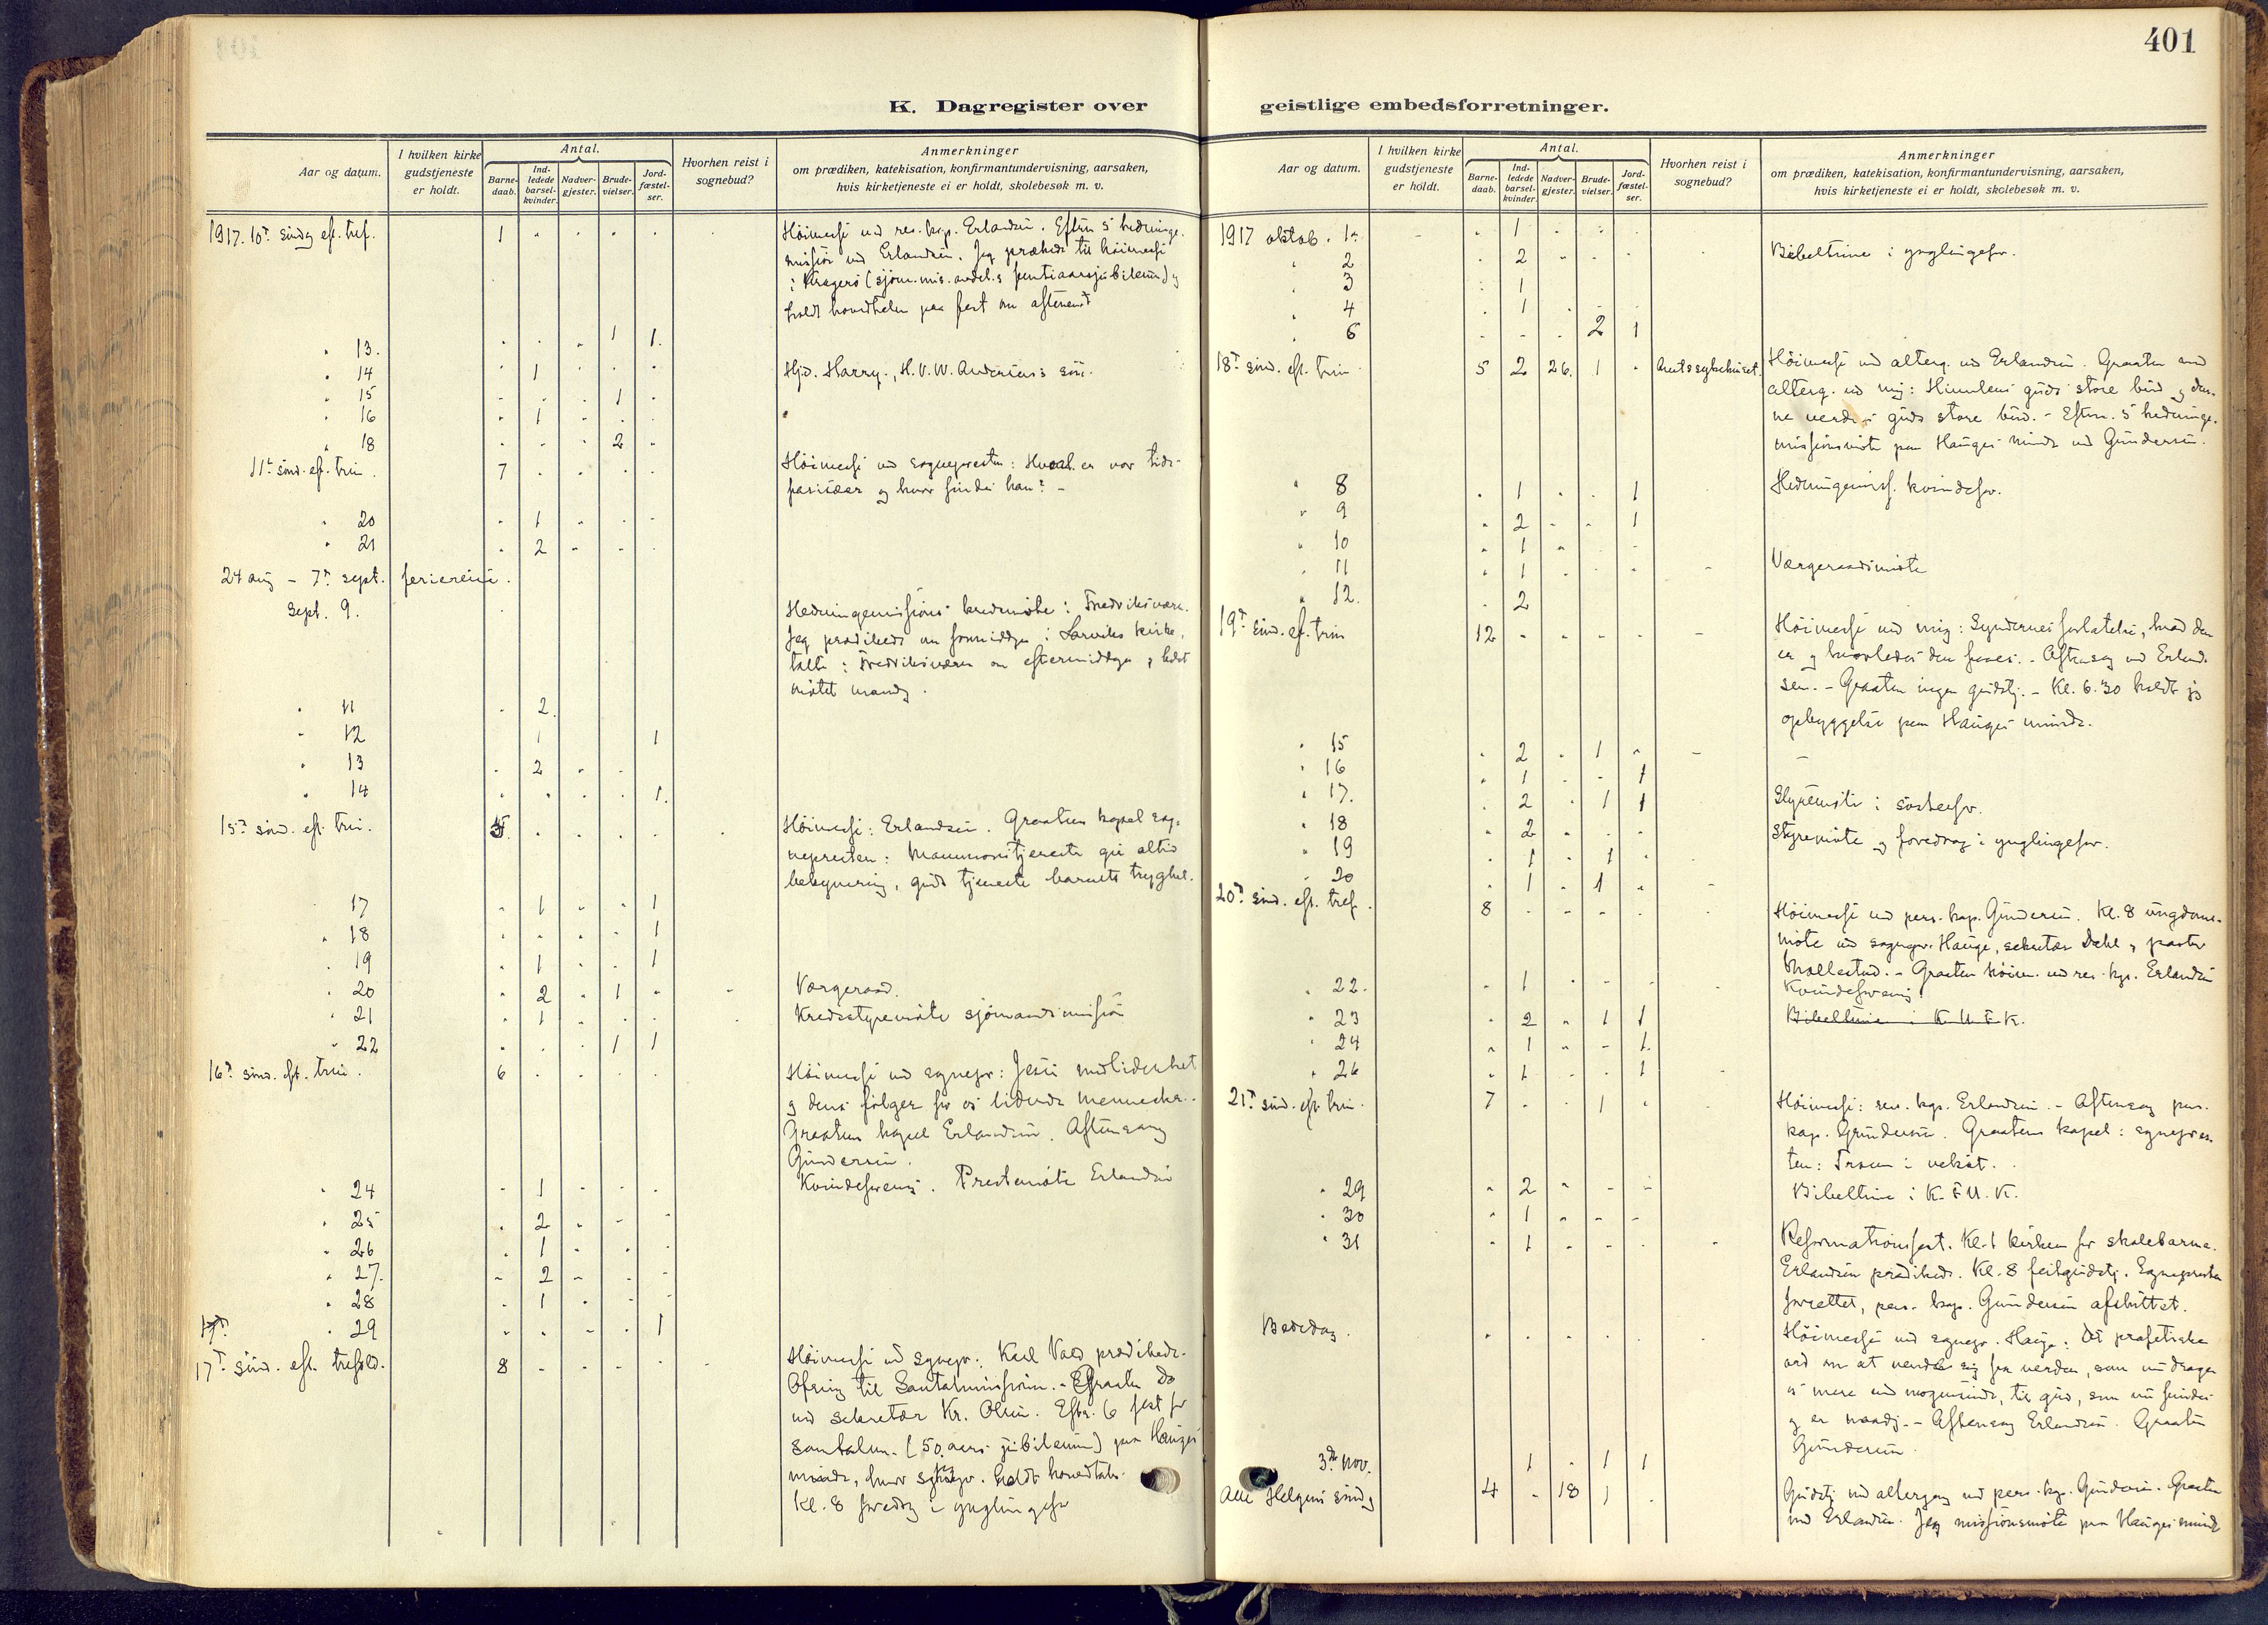 401
K. Dagregister over
Aar og datum.
I hvilken kirke gudstjeneste er holdt.
Antal.
Barne-daab.
Ind-ledede barsel-kvinder.
Nadver-gjester.
Brude-vielser.
Jord-fæstel-ser.
Hvorhen reist i sognebud?
Anmerkninger
om prædiken, katekisation, konfirmantundervisning, aarsaken,
hvis kirketjeneste ei er holdt, skolebesøk m. v.
1917. 10de søndg eft. tref. 1 Høimesse ved res. kap. Erlandsen. Efterm 5 hedninge-
mission ved Erlandsen. Jeg præket til høimesse
i Kragerø (sjøm.mis. avdel.s femtiaarsjubileum) og
holdt hovedtalen paa fest om aftenen
" 13. 1 1.
" 14 1 Hj.d. Harry, H. V. W. Andersens søn.
" 15 1
" 16 1
" 18 2
11te sønd. eft. trin. 7 Høimesse ved sognepresten: Hvad er vor tids
farisæer og hvor findes han? -
" 20 1
" 21 2
24 aug - 7de sept. feriereise.
Sept. 9. Hedningemissions kredsmøte i Fredriksværn.
Jeg prædikede om formiddgen i Larviks kirke,
talte i Fredriksværn om eftermiddgen & ledet
møtet mandg.
" 11 2.
" 12 1 1
" 13 2
" 14 1.
15de sønd. eft. trin. 5. Høimesse: Erlandsen. Graaten kapel sog-
nepresten: Mammonstjeneste gir altid
bekymring, guds tjeneste barnets tryghet.
17 1 1
" 18 1
" 19 1 1
" 20 2 1 Værgeraad.
" 21 1 Kredsstyremøte sjømandsmission
" 22 1 1
16de sønd. eft. trin. 6 Høimesse ved sognepr: Jesu medlidenhet
og dens følger for os lidende mennesker.
Graaten kapel Erlandsen. Aftensang
Gundersen.
" 24 1 Kvindeforening. Prestemøte Erlandsen
" 25 2
" 26 1
" 27. 2
" 28 1
" 29 1
17de sønd. eft. trefold. 8 Høimesse ved sognepr: Karl Vold prædikede.
Ofring til Santalmissionen. - Graaten do
ved sekretær Kr. Olsen. Efter. 6 fest for
Santalm. (50 aars jubileum) paa Hauges
minde, hvor sognepr. holdt hovedtale.
Kl. 8 foredrg i ynglingefor
geistlige embedsforretninger.
Aar og datum.
I hvilken kirke gudstjeneste er holdt.
Antal.
Barne-daab.
Ind-ledede barsel-kvinder.
Nadver-gjester.
Brude-vielser.
Jord-fæstel-ser.
Hvorhen reist i sognebud?
Anmerkninger
om prædiken, katekisation, konfirmantundervisning, aarsaken,
hvis kirketjeneste ei er holdt, skolebesøk m. v.
1917 oktob. 1. 1
" 2 2 Bibeltime i ynglingefor.
" 3 1
" 4 1
" 6 2 1
18de sønd. eft. trin. 5 2 26. 1 Amtssykehuset. Høimesse med alterg. ved Erlandsen. Graaten med
alterg. ved mig: Himlens guds store bud og den-
ne verdens guds store bud. - Efterm. 5 hedninge-
missionsmøte paa Hauges minde ved Gundersen.
" 8 1 1 Hedningemiss. kvindefor.
" 9 2 1
" 10 1
" 11 1 Værgeraadsmøte
" 12. 2
19de sønd. ef. trin 12 Høimesse ved mig: Syndernes forlatelse, hvad den
er og hvorledes den faaes. - Aftensg ved Erland-
sen. - Graaten ingen gudstj. - Kl. 6.30 holdt jeg
opbyggelse paa Hauges minde.
" 15 2 1
" 16 1 1
" 17. 2 1 1 Styremøte i søsterfor.
" 18 2 Styremøte og foredrag i ynglingefor.
" 19 1 1
" 20 1 1
20de sønd. eft. tref. 8 Høimesse ved pers. kap. Gundersen. Kl. 8 ungdoms-
møte ved sognepr. Hauge, sekretær Dahl & pastor
Mollestad. - Graaten høim. ved res. kap. Erlandsen
" 22. 1 Kvindeforening.
" 23 2 1 1 Bibeltime i K. U. F. K.
" 24 1 1.
" 26 1 1
21de sønd. eft. trin. 7 1 Høimesse: res. kap. Erlandsen. - Aftensag pers.
kap. Gundersen. Graatens kapel: sognepres-
ten: Troen i vekst.
" 29 2 Bibeltime i K. F. U. K.
" 30 1
" 31 1 Reformationsfest. Kl. 1 kirken for skolebarna.
Erlandsen prædikede. Kl. 8 festgudstj. Sognepresten
forrettet, pers. kap. Gundersen afsluttet.
Bededag. Høimesse ved sognepr. Hauge: Det profetiske
ord om at vende sig fra verden, som nu drager
os mere end nogensinde, til gud, som nu findes
og er naadig. - Aftensag Erlandsen. Graaten
Gundersen.
3de nov. 1 1 1
Alle Helgens søndg 4 18 1 Gudstj. med altergang ved pers. kap. Gundersen. Graaten
ved Erlandsen. Jeg missionsmøte paa Hauges minde